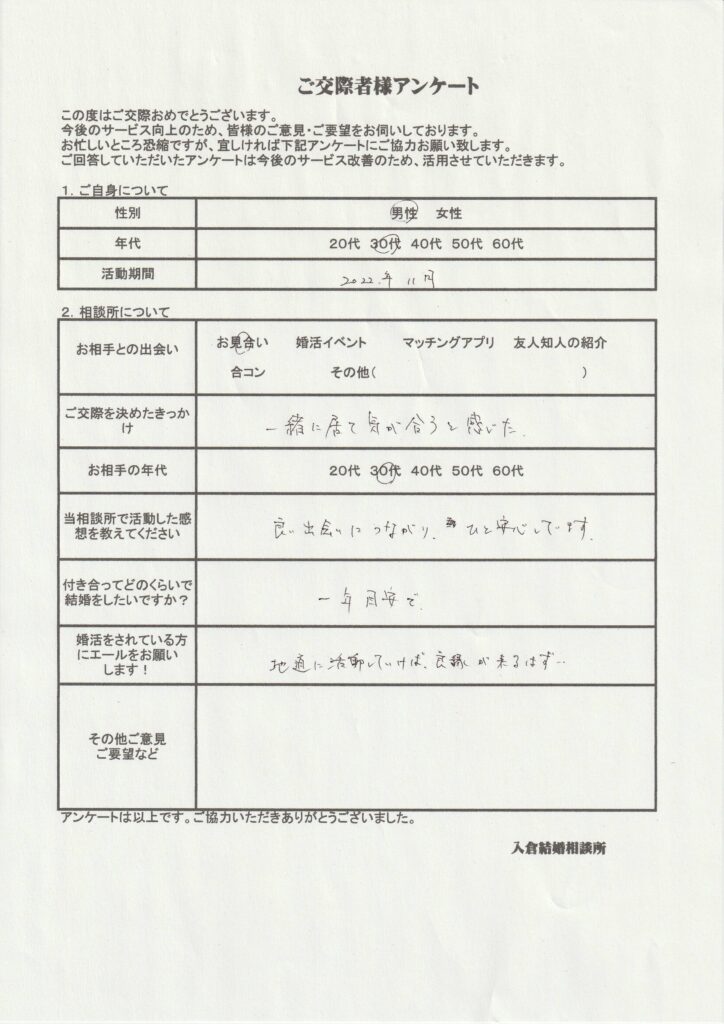 ご交際者様アンケート
この度はご交際おめでとうございます。
今後のサービス向上のため、皆様のご意見・ご要望をお伺いしております。
お忙しいところ恐縮ですが、宜しければ下記アンケートにご協力お願い致します。
ご回答していただいたアンケートは今後のサービス改善のため、活用させていただきます。
1. ご自身について
性別 男性 女性
年代 20代 30代 40代 50代 60代
活動期間 2022.年 11月
2. 相談所について
お相手との出会い
お見合い 婚活イベント マッチングアプリ 友人知人の紹介
合コン その他( )
ご交際を決めたきっか
け
一緒に居て 気が合うと感じた.
お相手の年代 20代 30代 40代 50代 60代
当相談所で活動した感
想を教えてください
良い出会いにつながり、 ひと安心しています.
付き合ってどのくらいで
結婚をしたいですか？
一年目安で.
婚活をされている方
にエールをお願い
します！
地道に活動していけば、良縁が来るはず…
その他ご意見
ご要望など
アンケートは以上です。ご協力いただきありがとうございました。
入倉結婚相談所